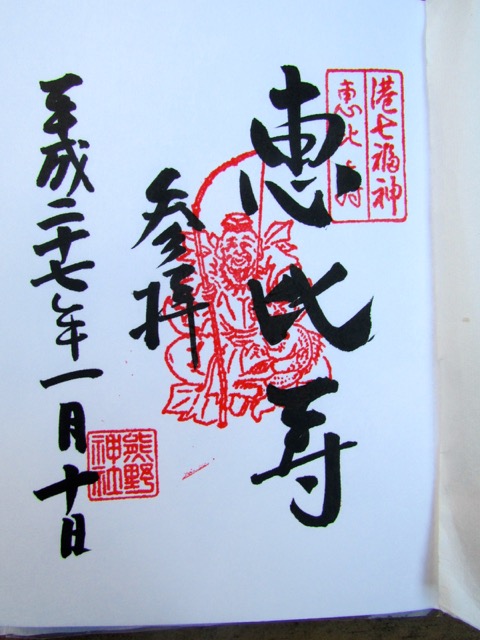 港七福神
恵比寿
恵比寿
参拝
平成二十七年一月十日
熊野
神社